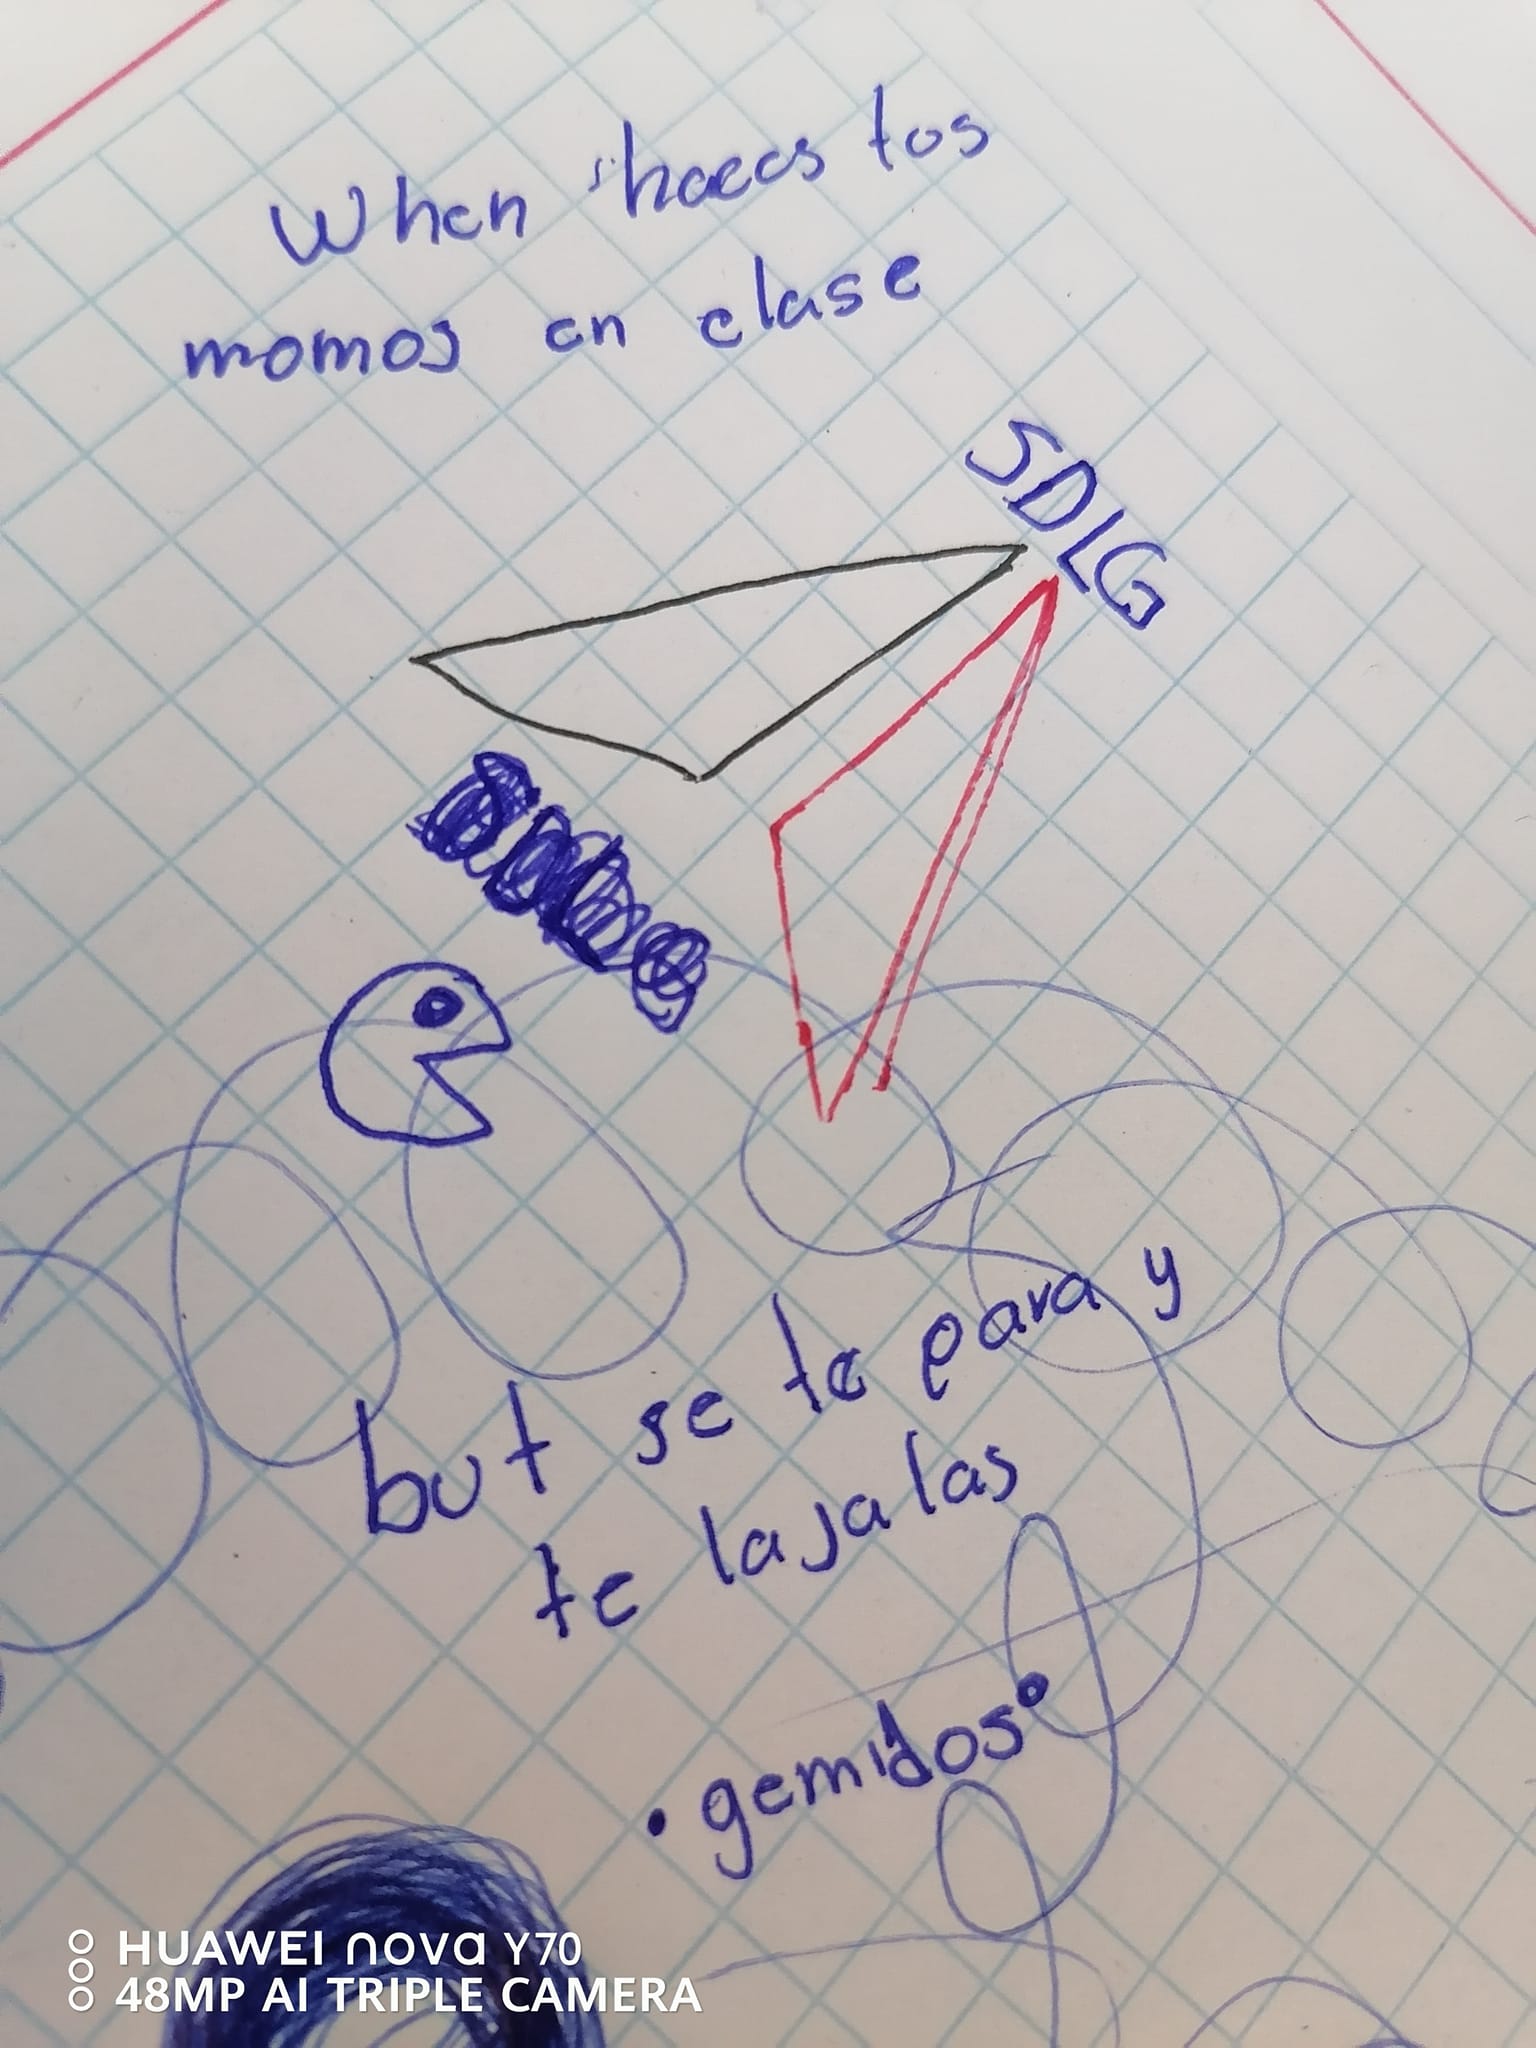 When haces tos
momos en clase
SDLG
but se te para y
te la jalas
•gemidos•
HUAWEI nova Y70
48MP AI TRIPLE CAMERA